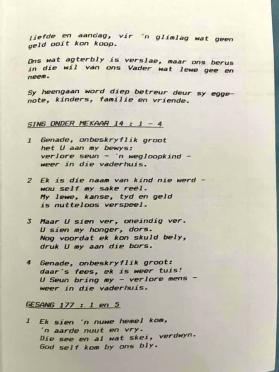 liefde en aandag, vir 'n glimlag wat geen
geld ooit kon koop.
Ons wat agterbly is verslae, maar ons berus
in die wil van ons Vader wat lewe gee en
neem.
Sy heengaan word diep betreur deur sy egge-
note, kinders, familie en vriende.
SING ONDER MEKAAR 14 : 1 - 4
1 Genade, onbeskryflik groot
het U aan my bewys:
verlore seun - 'n wegloopkind -
weer in die vaderhuis.
2 Ek is die naam van kind nie werd -
wou self my sake reel.
My lewe, kanse, tyd en geld
is nutteloos verspeel.
3 Maar U sien ver, oneindig ver.
U sien my honger, dors.
Nog voordat ek kon skuld bely,
druk U my aan die bors.
4 Genade, onbeskryflik groot:
daar's fees, ek is weer tuis!
U Seun bring my - verlore mens -
weer in die vaderhuis.
GESANG 177 : 1 en 5
1 Ek sien 'n nuwe hemel kom,
'n aarde nuut en vry.
Die see en al wat skei, verdwyn.
God self kom by ons bly.